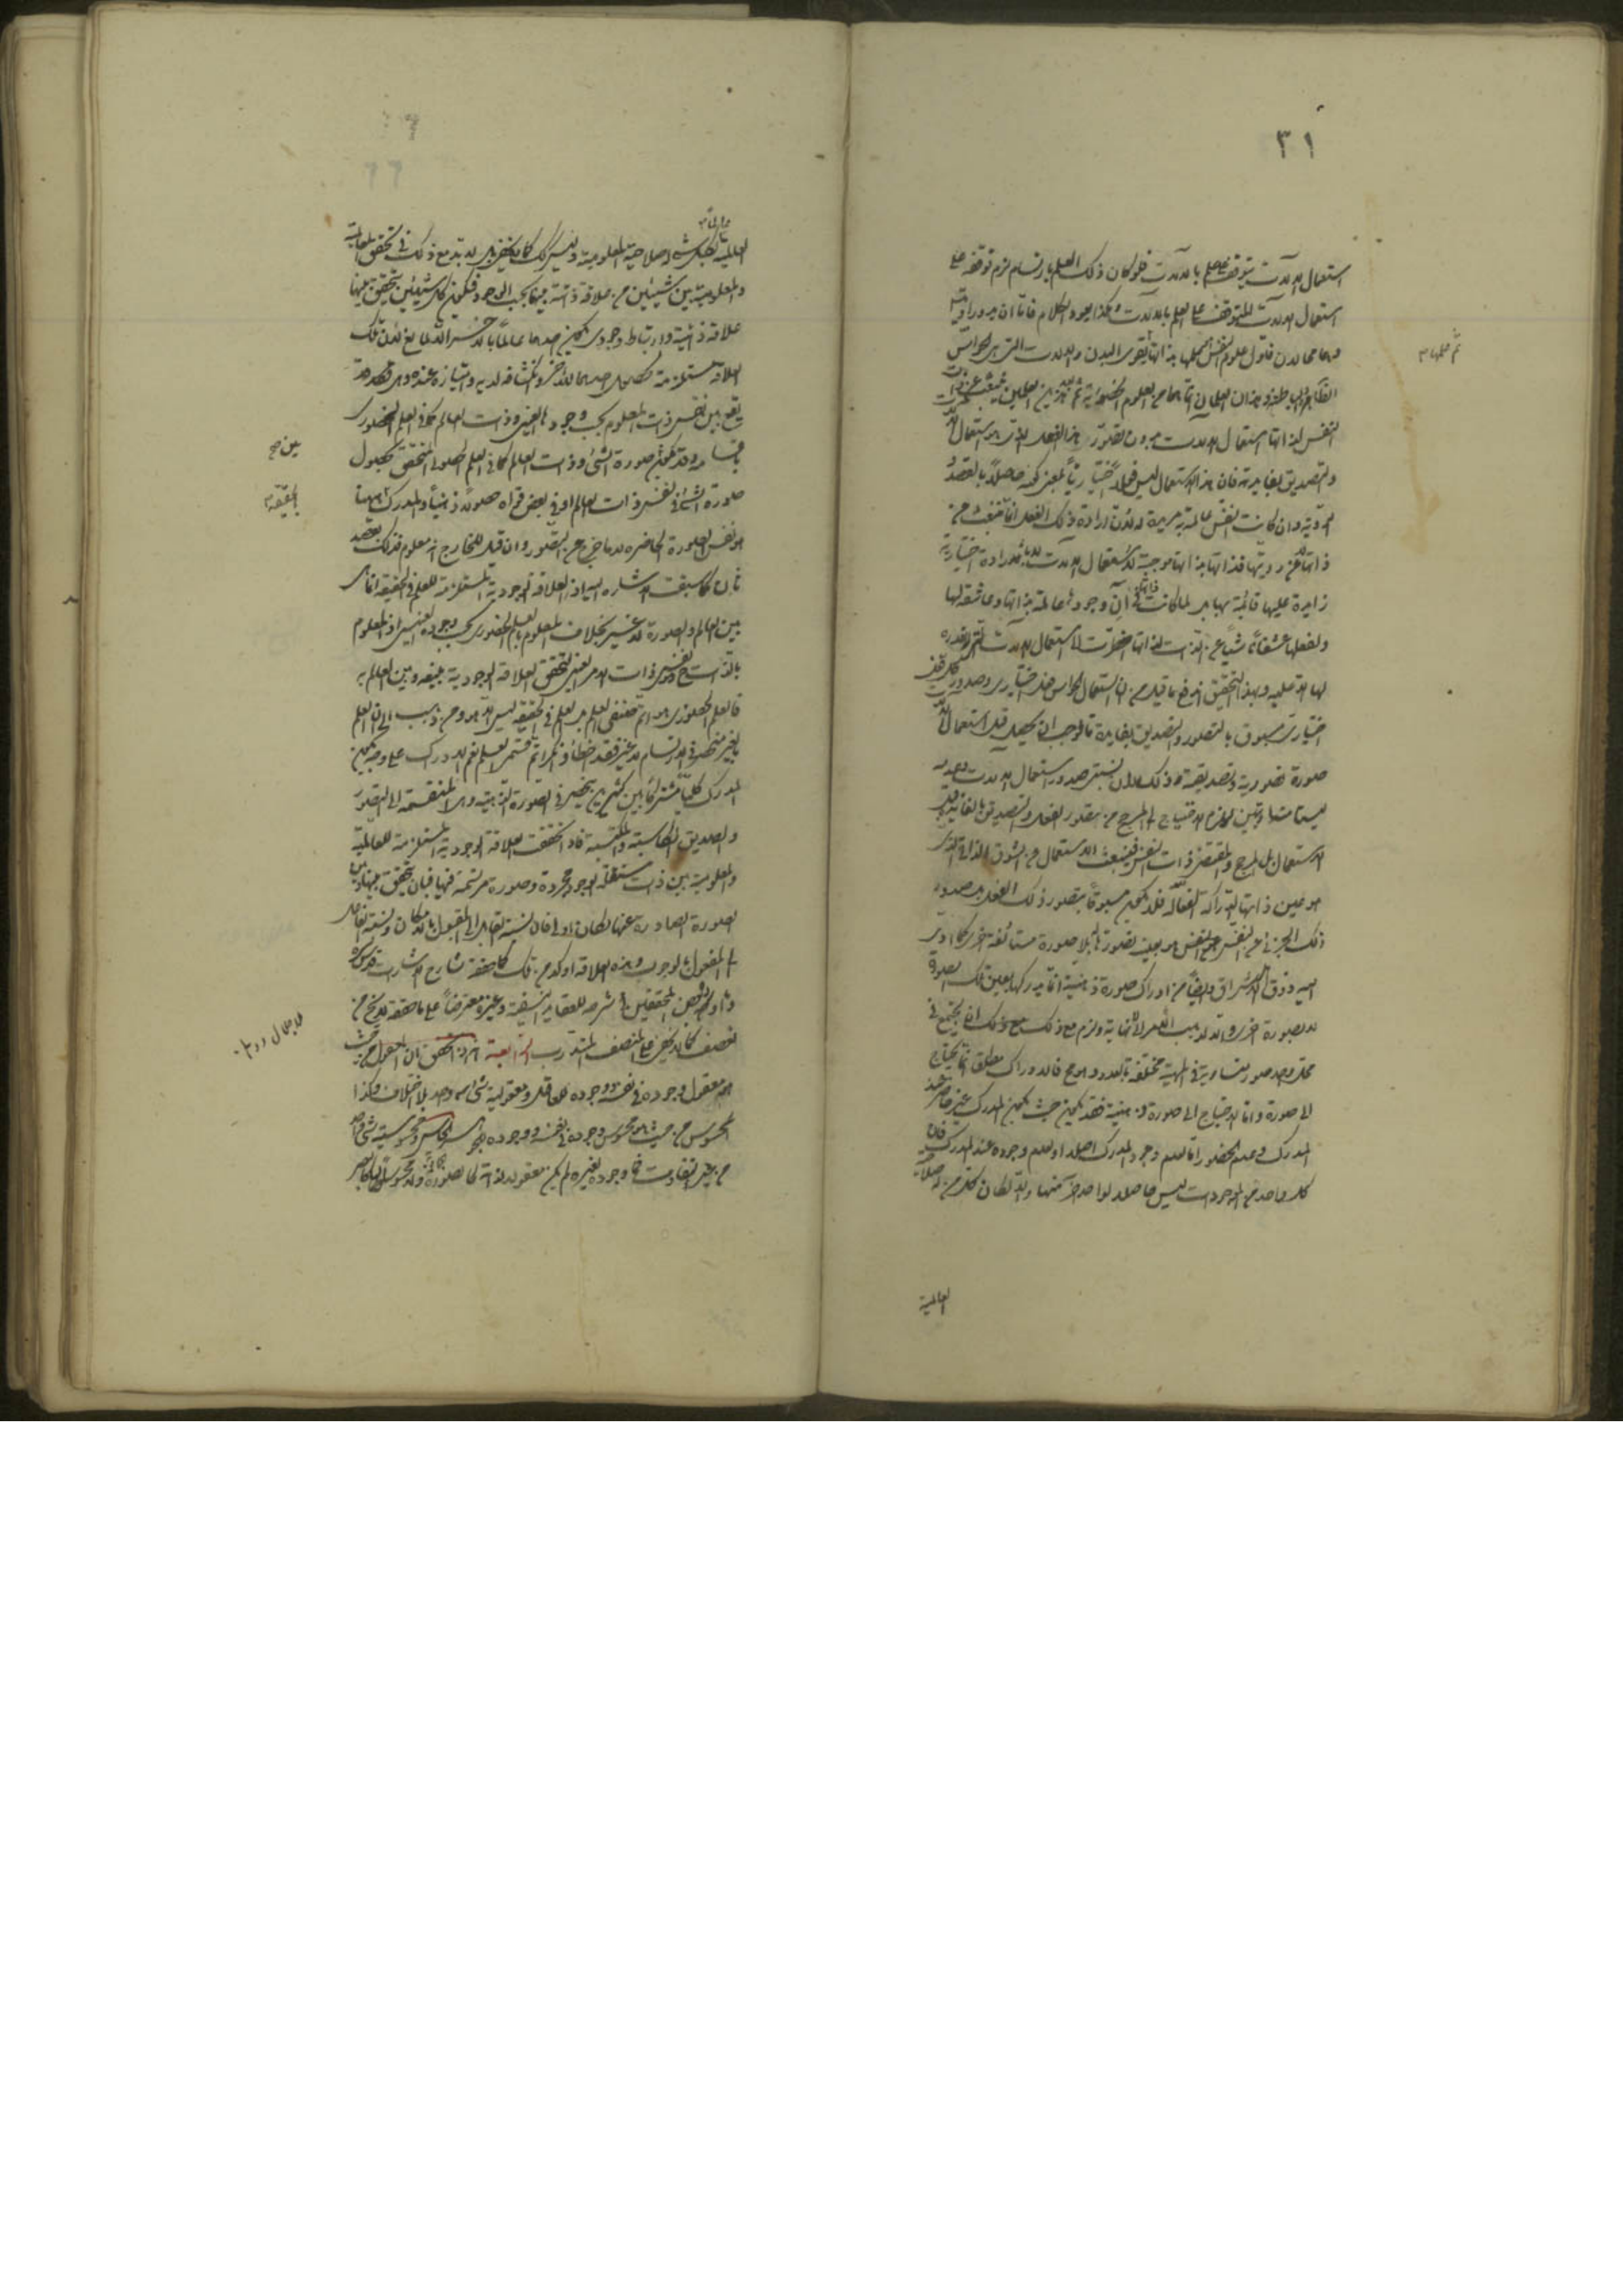 ٣١
استعمال الآلات يتوقف على العلم بالآلات فلو كان ذلك العلم بارتسام لزم توقفه على
استعمال الآلات المتوقف على العلم بالآلات وهكذا يعود الكلام فاما ان يدور او يتسلسل
وهما محالان فاول علوم النفس علمها بذاتها ثم علمها بقوى البدن والآلات التي هي الحواس
الظاهرة والباطنة وهذان العلمان انما هما من العلوم الحضورية ثم بعد هذين العلمين ينبعث عن ذات
النفس لذاتها استعمال الآلات بدون تصور هذا الفعل الذي هو استعمال الآلات
والتصديق بفايدته فان هذا الاستعمال ليس فعلاً اختيارياً بمعنى كونه حاصلاً بالقصد
والروية وان كانت النفس عالمة به مريدة له لان ارادة ذلك الفعل انما تنبعث من
ذاتها لا عن رويتها فذاتها بذاتها موجبة لاستعمال الآلات لا بارادة اختيارية
زايدة عليها قائمة بها بل لما كانت ذاتها في آن وجودها عالمة بذاتها وعاشقة لها
ولفعلها عشقاً ناشياً عن الذات لذاتها اضطرت الى استعمال الآلات التي لا قدرة
لها الا عليه وبهذا التحقيق اندفع ما قيل من ان استعمال الحواس فعل اختياري وصدور كل فعل
اختياري مسبوق بالتصور والتصديق بفايدة ما فوجب ان يحصل قبل استعمال الآلات
صورة تصورية وتصديقية وذلك لان نسبتي صدور استعمال الآلات وعدمه
ليستا متساويتين ليلزم الاحتياج الى المرجح من تصور الفعل والتصديق بالغاية قبل
الاستعمال بل المرجح والمقتضي ذات النفس فينبعث الاستعمال من الشوق الذاتي الذي
هو عين ذاتها الدراكة الفعالة فلا يكون مسبوقاً بتصور ذلك الفعل بل صدور
ذلك الجزئي عن النفس هو بعينه تصورها له بلا صورة مستانفة اخرى كما ادى
اليه ذوق اهل الاشراق وايضاً من ادراك صورة ذهنية انما يدركها بعين تلك الصورة
لا بصورة اخرى والا لذهب الامر الى لا نهاية ولزم مع ذلك ان يجتمع في
محل واحد صور متساوية في المهية مختلفة بالعدد وهو مح فالادراك مطلقا انما يحتاج
الى صورة واما الاحتياج الى صورة ذهنية فقد يكون حيث يكون المدرك غير حاضر عند
المدرك وعدم الحضور اما لعدم وجود المدرك اصلا او لعدم وجوده عند المدرك فان
كل واحد من الموجودات ليس حاصلا لواحد آخر منها والا لكان كل من له صلاحية
العالمية
ثم علمها م
العالمية لكل شئ له صلاحية المعلومية وليس كذلك كما لا يخفى بل لا بد مع ذلك في تحقق العالمية
والمعلومية بين شيئين من علاقة ذاتية بينهما بحسب الوجود فيكون كل شيئين يتحقق بينهما
علاقة ذاتية وارتباط وجودي يكون احدهما عالماً بالآخر الا لمانع لان تلك
العلاقة مستلزمة لحصول احدهما للآخر وانكشافه لديه وامتيازه عنده وهي قد
يقع بين نفس ذات المعلوم بحسب وجودها العيني وذات العالم كما في العلم الحضوري
باقسامه وقد يكون بين صورة الشئ وذات العالم كما في العلم الحصولي المتحقق بحصول
صورة الشئ في نفس ذات العالم او في بعض قواه حصولاً ذهنياً والمدرك
هو نفس الصورة الحاضرة لا ما خرج عن التصور وان قيل للخارج انه معلوم فذلك بقصد
ثان كما سبقت الاشارة اليه اذ العلاقة الوجودية المستلزمة للعلم في الحقيقة انما هي
بين العالم والصورة لا غير بخلاف المعلوم بالعلم الحضوري بحسب وجوده العيني اذ المعلوم
بالذات ح هو نفس ذات الامر العيني لتحقق العلاقة الوجودية بينه وبين العالم به
فالعلم الحضوري هو اتم صنفي العلم بل العلم في الحقيقة ليس الا هو ومن ذهب الى ان العلم
بالغير منحصر في الارتسام لا غير فقد اخطأ وانكر اتم قسمي العلم نعم الادراك على وجه يكون
المدرك كلياً مشتركاً بين كثيرين ينحصر في الصورة الذهنية وهي المنقسمة الى التصور
والتصديق الكاسبة والمكتسبة فاذا تحققت العلاقة الوجودية المستلزمة للعالمية
والمعلومية بين ذات مستقلة الوجود مجردة وصورة مرتسمة فيها فبان يتحقق بينها وبين
الصورة الصادرة عنها لكان اولى فان نسبة القابل الى المقبول بالامكان ونسبة الفاعل
الى المفعول بالوجوب وهذه العلاقة اوكد من تلك كما حققه شارح الاشارات قدس سره
وما اورده بعض المحققين في شرحه للعقايد النسفية وغيره معترضاً على ما حققه لا يخ من
تعسف كما لا يخفى على المنصف المتدرب الرابعة انه ان المعقول من حيث
هو معقول وجوده في نفسه ووجوده للعاقل ومعقوليته شئ واحد بلا اختلاف وكذا
المحسوس من حيث هو محسوس وجوده في نفسه ووجوده للجوهر الحاس ومحسوسيته شئ واحد
من غير تفاوت فما وجوده لغيره لم يكن معقولا لذاته كالصورة ولا محسوساً
الحقيقة